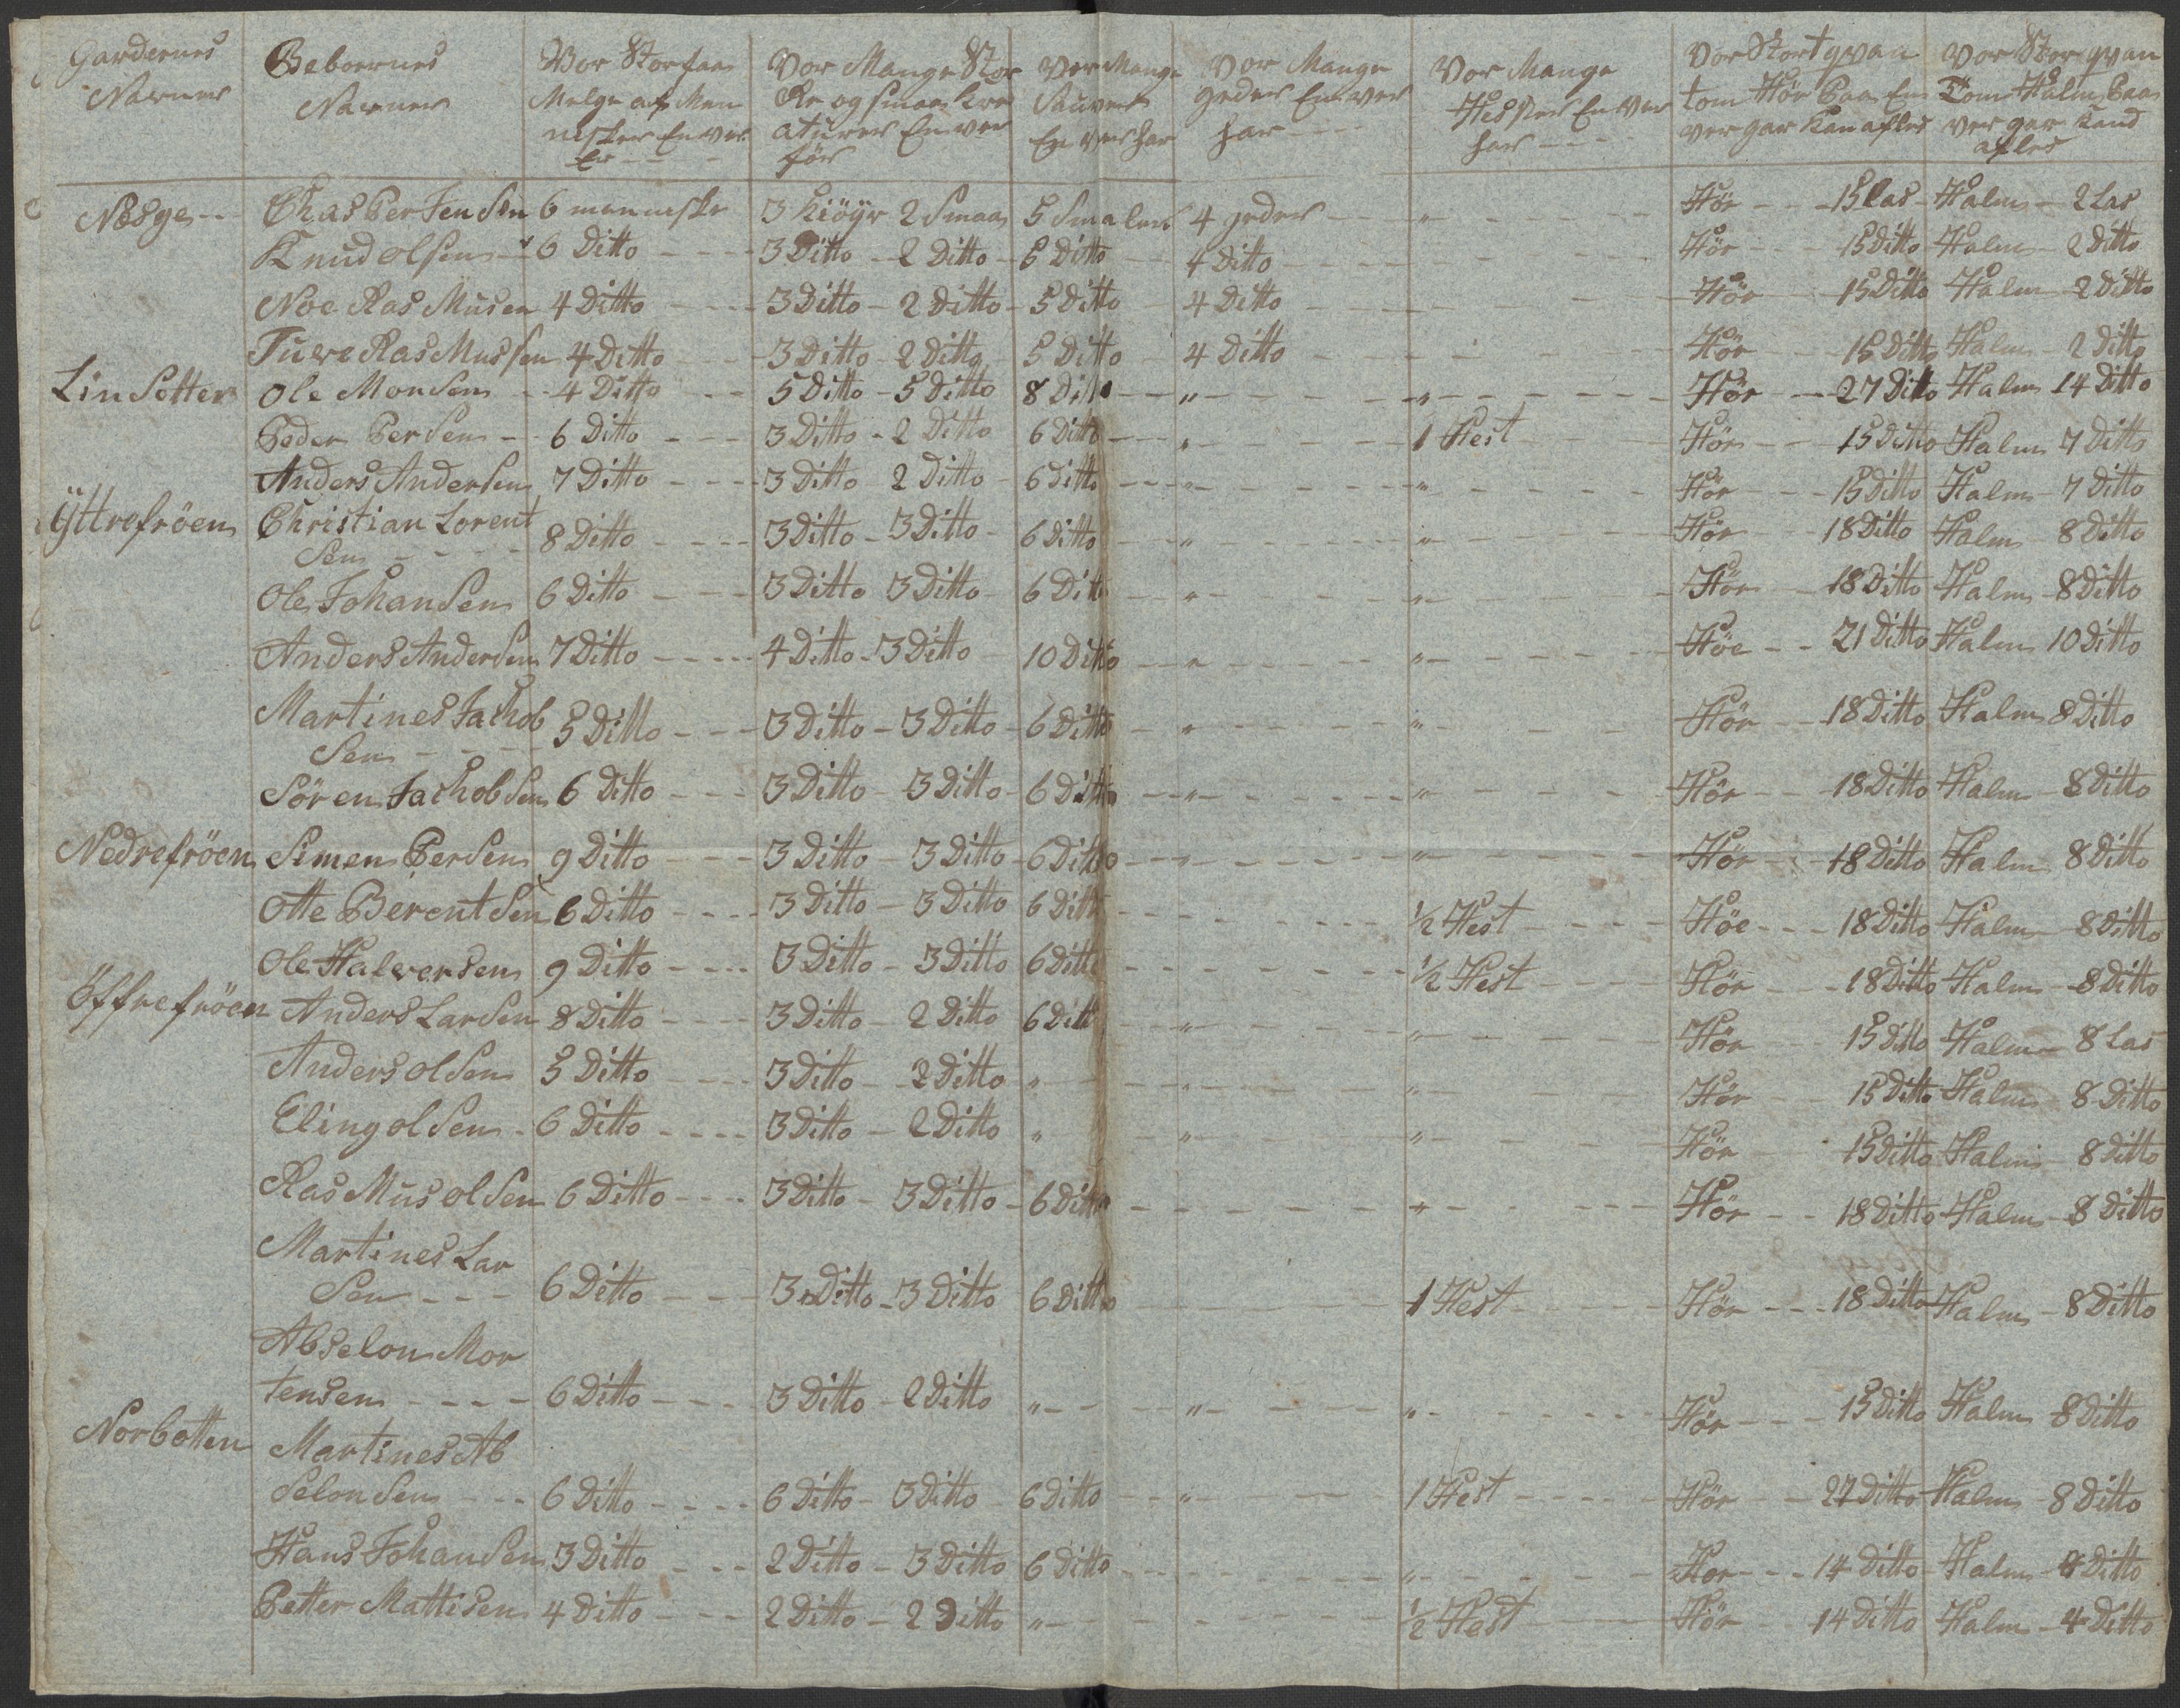 Gardernes Navner | Beboernes Navner | Vor Stor faa Melge af Men nisker En ver Er | Vor Mange Stor Re og smaa kre aturer En ver för | Vor Mange Sauver En ver har | Vor Mange geder En ver har | Vor Mange Hester En ver har | Vor Stort qvan tom Hör Paa En ver gar Kan afles | Vor Stor qvan Tom Halm Paa ver gar Kand afles
Næsge | Chasper Jensen | 6 menniske | 3 kiöyr 2 Smaa | 5 Smaler | 4 geder | " | Hör 15 las | Halm 2 Las
Knud olsen | 6 Ditto | 3 Ditto - 2 Ditto | 5 Ditto | 4 Ditto | Hör 15 Ditto | Halm 2 Ditto
Noe RasMusen | 4 Ditto | 3 Ditto - 2 Ditto | 5 Ditto | 4 Ditto | Hör 15 Ditto | Halm 2 Ditto
Tuve RasMussen | 4 Ditto | 3 Ditto - 2 Ditto | 5 Ditto | 4 Ditto | Hör 15 Ditto | Halm 2 Ditto
Linsetter | ole Monsen | 4 Ditto | 5 Ditto - 5 Ditto | 8 Ditto | " | " | Hör 27 Ditto | Halm 14 Ditto
Peder Persen | 6 Ditto | 3 Ditto - 2 Ditto | 6 Ditto | " | 1 Hest | Hör 15 Ditto | Halm 7 Ditto
Anders Andersen | 7 Ditto | 3 Ditto 2 Ditto | 6 Ditto | " | " | Hör 15 Ditto | Halm 7 Ditto
Yttrefröen | Christian Lorent
Sen | 8 Ditto | 3 Ditto - 3 Ditto | 6 Ditto | " | " | Hör 18 Ditto | Halm 8 Ditto
Ole Johansen | 6 Ditto | 3 Ditto 3 Ditto | 6 Ditto | " | " | Hör 18 Ditto | Halm 8 Ditto
Anders Andersen | 7 Ditto | 4 Ditto - 3 Ditto | 10 Ditto | " | " | Höe 21 Ditto | Halm 10 Ditto
Martines Jachob
Sen | 5 Ditto | 3 Ditto - 3 Ditto | 6 Ditto | " | " | Hör 18 Ditto | Halm 8 Ditto
Sören Jachobsen | 6 Ditto | 3 Ditto - 3 Ditto | 6 Ditto | " | " | Hör 18 Ditto | Halm 8 Ditto
Nedrefröen | Simen Persen | 9 Ditto | 3 Ditto - 3 Ditto | 6 Ditto | " | " | Hör 18 Ditto | Halm 8 Ditto
Otte Berentsen | 6 Ditto | 3 Ditto - 3 Ditto | 6 Ditto | 1/2 Hest | Höe 18 Ditto | Halm 8 Ditto
Ole Halversen | 9 Ditto | 3 Ditto - 3 Ditto | 6 Ditto | 1/2 Hest | Hör 18 Ditto | Halm 8 Ditto
Öffrefröen | Anders Larsen | 8 Ditto | 3 Ditto - 2 Ditto | 6 Ditto | " | " | Hör 15 Ditto | Halm 8 Las
Anders olsen | 5 Ditto | 3 Ditto - 2 Ditto | " | " | " | Hör 15 Ditto | Halm 8 Ditto
Eling olsen | 6 Ditto | 3 Ditto - 2 Ditto | " | " | " | Hör 15 Ditto | Halm 8 Ditto
RasMus olsen | 6 Ditto | 3 Ditto - 3 Ditto | 6 Ditto | " | Hör 18 Ditto | Halm 8 Ditto
Martines Lar
Sen | 6 Ditto | 3 Ditto - 3 Ditto | 6 Ditto | 1 Hest | Hör 18 Ditto | Halm 8 Ditto
Abselon Mor
tensen | 6 Ditto | 3 Ditto - 2 Ditto | " | " | " | Hör 15 Ditto | Halm 8 Ditto
Norbotten | Martines Ab
Selonsen | 6 Ditto | 6 Ditto - 3 Ditto | 6 Ditto | " | 1 Hest | Hör 27 Ditto | Halm 8 Ditto
Hans Johansen | 3 Ditto | 2 Ditto - 3 Ditto | 6 Ditto | " | Hör 14 Ditto | Halm 4 Ditto
Petter Mattisen | 4 Ditto | 2 Ditto - 2 Ditto | " | 1/2 Hest | Hör 14 Ditto | Halm 4 Ditto